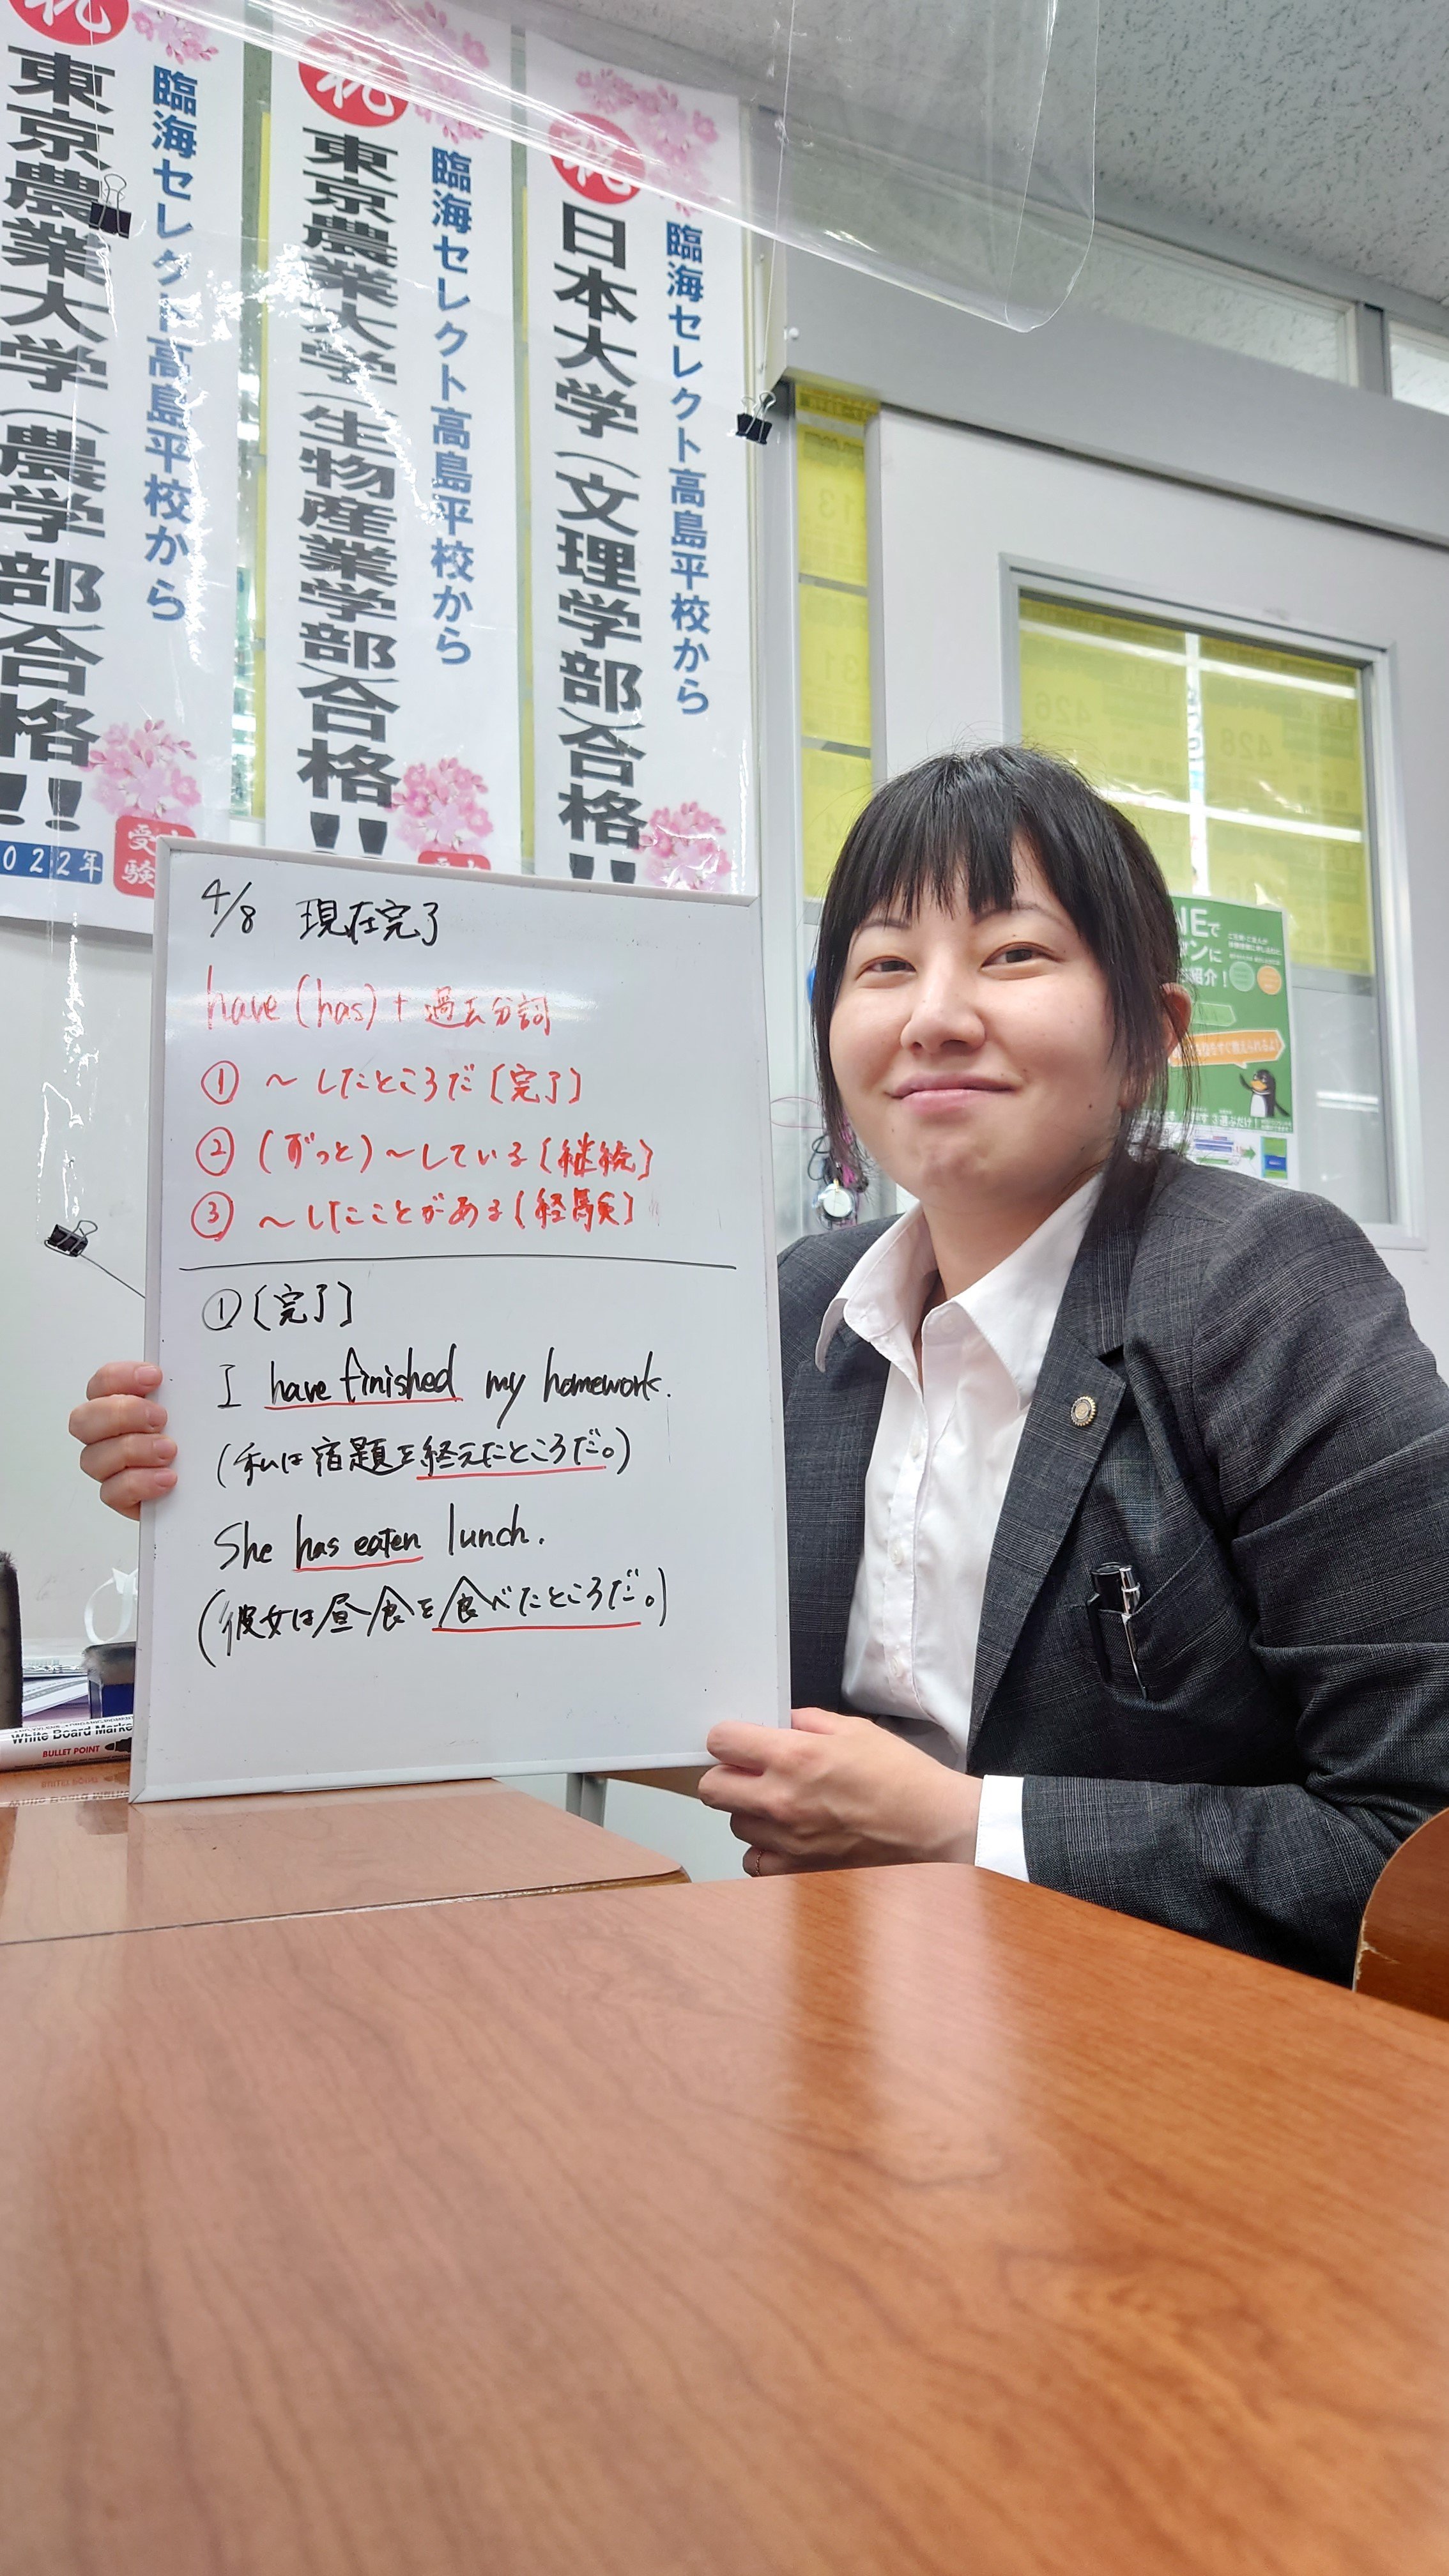 祝
臨海セレクト高島平校から
東京農業大学(農学部)合格!!
022年
受験
祝
臨海セレクト高島平校から
東京農業大学(生物産業学部)合格!!
祝
臨海セレクト高島平校から
日本大学(文理学部)合格!!
4/8 現在完了
have (has) + 過去分詞
① ~したところだ[完了]
② (ずっと)~している[継続]
③ ~したことがある[経験]
①[完了]
I have finished my homework.
(私は宿題を終えたところだ。)
She has eaten lunch.
(彼女は昼食を食べたところだ。)
NEで
ンに
紹介!
White Board Marke
BULLET POINT